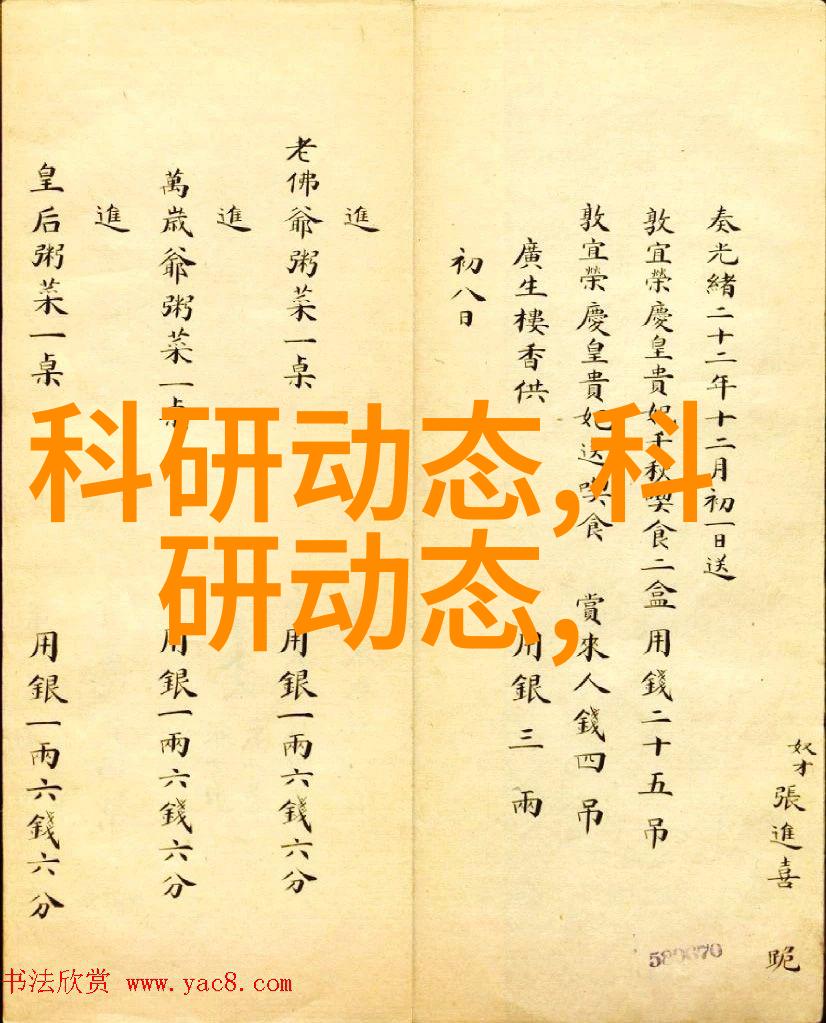 奴才張進喜 跪
奏光緒二十二年十二月初一日送
敦宜榮慶皇貴妃千秋喫食二盒用錢二十五吊
敦宜榮慶皇貴妃送喫食 賞來人錢四吊
廣生樓香供 用銀三兩
初八日
進
老佛爺粥菜一桌 用銀一兩六錢六分
進
萬歲爺粥菜一桌 用銀一兩六錢六分
進
皇后粥菜一桌 用銀一兩六錢六分
科研动态,科
研动态,
书法欣赏 www.yac8.com